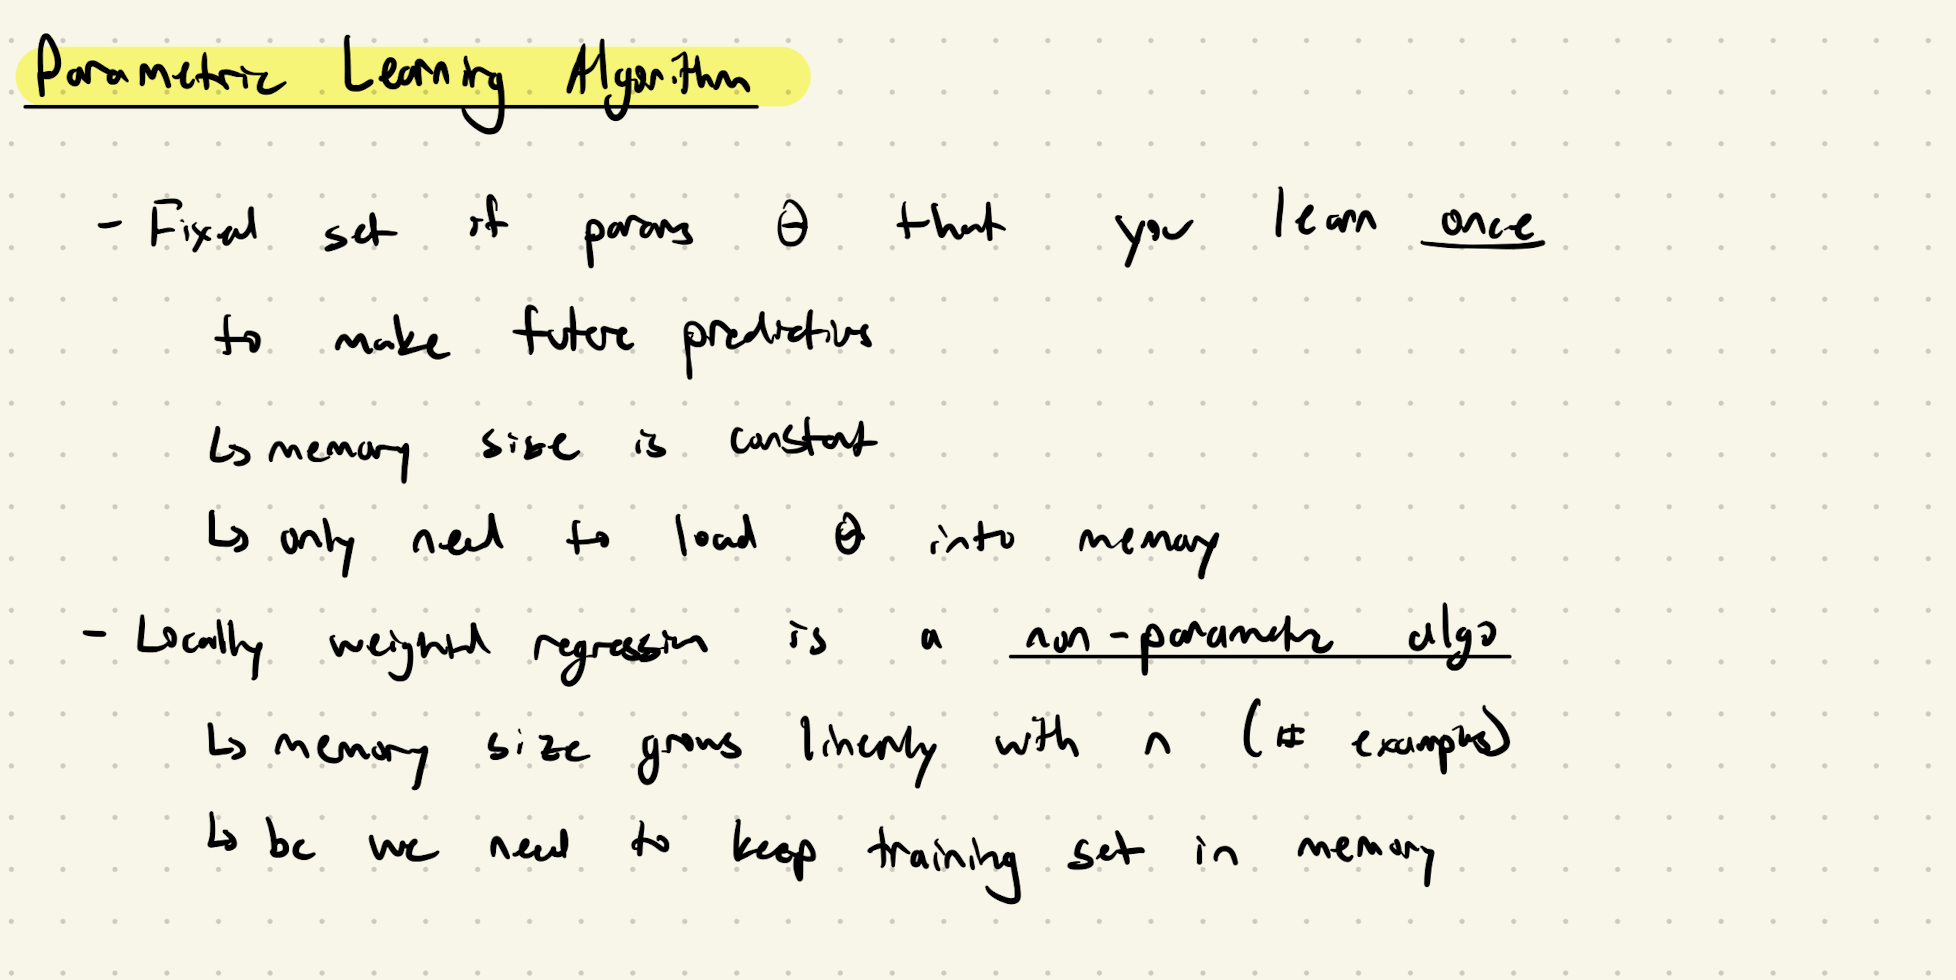 Parametric Learning Algorithm
- Fixed set of params θ that you learn once
to make future predictions
↳ memory size is constant
↳ only need to load θ into memory
- Locally weighted regression is a non-parametric algo
↳ memory size grows linearly with n (# examples)
↳ bc we need to keep training set in memory